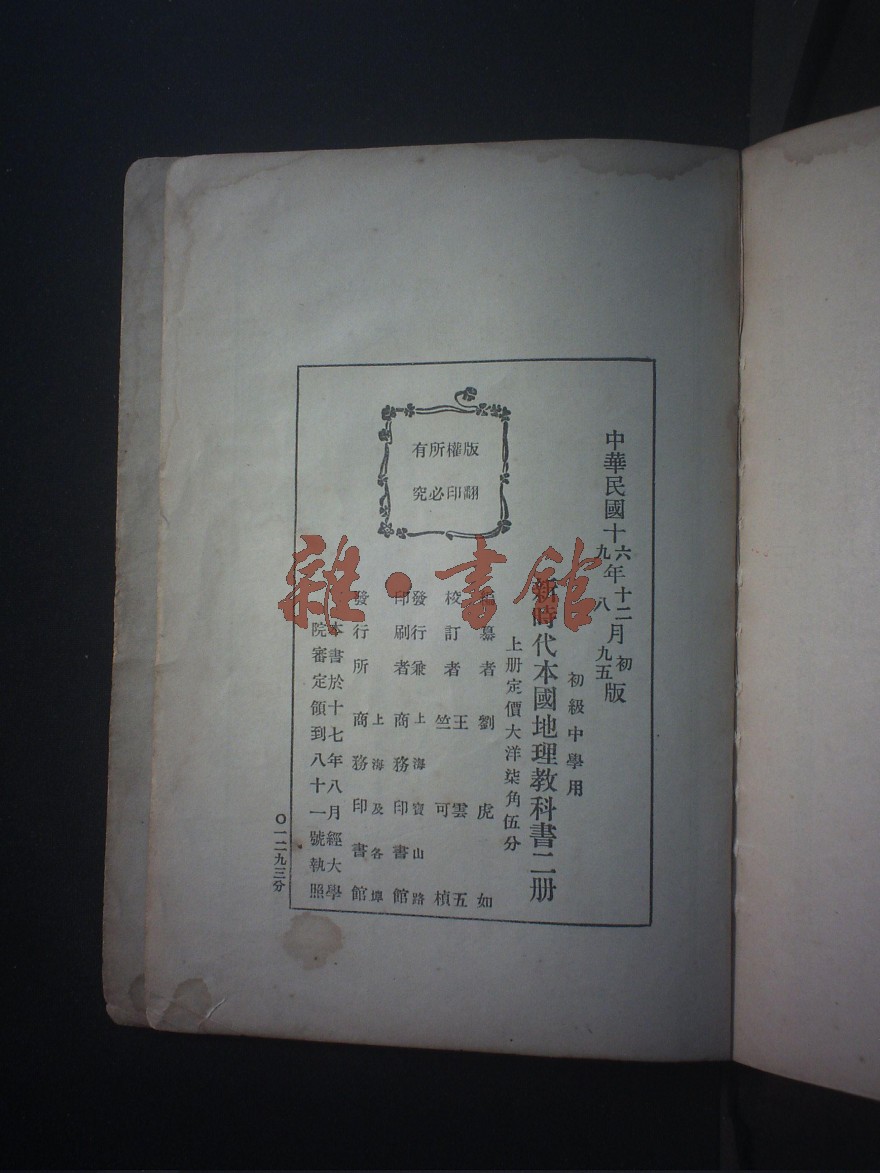 中華民國十六年十二月初版
九八九五
初級中學用
新時代本國地理教科書二册
上册定價大洋柒角伍分
編纂者 劉虎如
校訂者 王雲五
竺可楨
發行兼 上海寶山路
印刷者 商務印書館
上海及各埠
發行所 商務印書館
本書於十七年八月經大學
院審定領到八十一號執照
版權所有
翻印必究
〇一二九三分
雜·書館